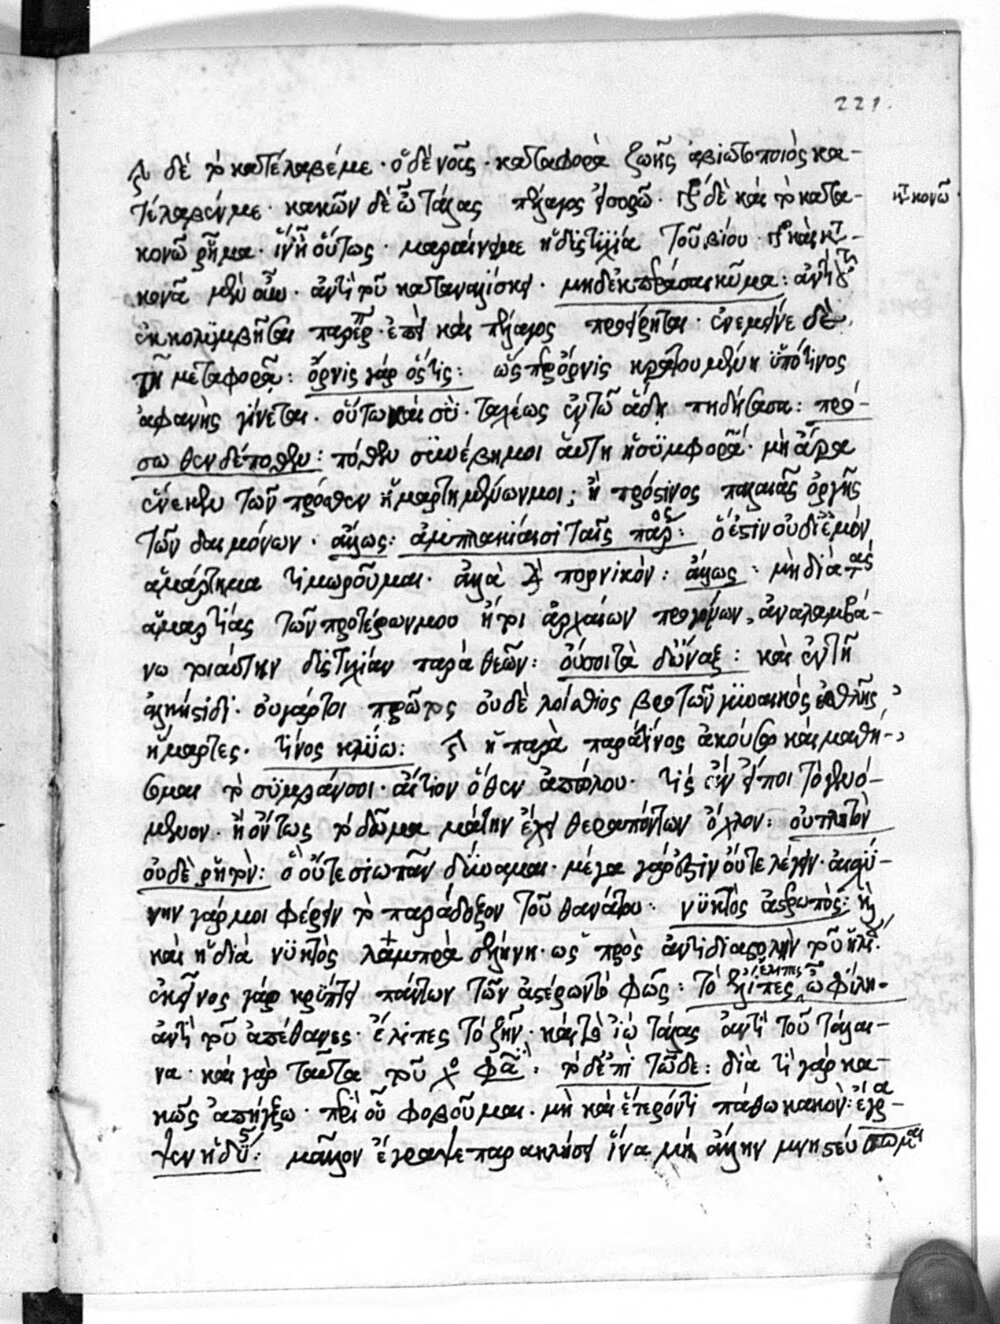 221.
δὲ τὸ κατέλαβέ με · ὁ δὲ νοῦς · καταφορὰ ζωῆς ἀβιωτοποιὸς κα-
τέλαβέν με · κακῶν δὲ ὦ τάλας πέλαγος εἰσορῶ · δὲ καὶ τὸ κατα-
κονῶ
κονῶ ῥῆμα · ἵν' ᾖ οὕτως · μαραίνει με ἡ δυστυχία τοῦ βίου · καὶ
κονᾶ μὲν οὖν · ἀντὶ τοῦ καταναλίσκει · μηδ' ἐκπερᾶσαι κῦμα : ἀντὶ
ἐκκολυμβῆσαι · ἐπεὶ καὶ πέλαγος προείρηται · ἐνέμεινε δὲ
τῇ μεταφορᾷ : ὄρνις γὰρ ὥς τις : ὥσπερ ὄρνις κρατουμένη ὑπό τινος
ἀφανὴς γίνεται · οὕτω καὶ σὺ · ταχέως ἐν τῷ ᾅδῃ πηδήσασα : πρό-
σωθεν δέ ποθεν : πόθεν συνέβη μοι αὕτη ἡ συμφορά · μὴ ἄρα
ἕνεκεν τῶν πρόσθεν ἡμαρτημένων μοι ; ἢ πρός τινος παλαιᾶς ὀργῆς
τῶν δαιμόνων · ἄλλως : ἀμπλακίαισι ταῖς πάρος : ὅ ἐστιν οὐ δι' ἐμὸν
ἁμάρτημα τιμωροῦμαι · ἀλλὰ πορνικόν : ἄλλως : μὴ διὰ τὰς
ἁμαρτίας τῶν προτέρων μου ἤτοι ἀρχαίων προγόνων, ἀναλαμβά-
νω τοιαύτην δυστυχίαν παρὰ θεῶν : οὐ σοὶ τάδ' ὦναξ : καὶ ἐν τῇ
ἀλκήστιδι · οὐ γάρ τοι πρῶτος οὐδὲ λοίσθιος βροτῶν γυναικὸς ἐσθλῆς
ἥμαρτες · τίνος κλύω : ἢ παρὰ παρά τινος ἀκούσω καὶ μαθή-
σομαι τὸ συμβάν σοι · αἴτιον ὅθεν ἀπώλου · τίς ἂν εἴποι τὸ γενό-
μενον · ἢ ὄντως τὸ δῶμα μάτην ἔχει θεραπόντων ὄχλον : οὐ τλητὸν
οὐδὲ ῥητόν : ὃ οὔτε σιωπᾶν δύναμαι · μέγα γάρ ἐστιν οὔτε λέγειν · ἀλγύ-
νην γάρ μοι φέρειν τὸ παράδοξον τοῦ θανάτου · νυκτὸς ἀστρωπὸς :
καὶ ἡ διὰ νυκτὸς λάμπρα σελήνη · ὡς πρὸς ἀντιδιαστολὴν τοῦ ἡλίου ·
ἐκεῖνος γὰρ κρύπτει πάντων τῶν ἀστέρων τὸ φῶς : τὸ ἔλιπες ἔλιπες ὦ φίλη ·
ἀντὶ τοῦ ἀπέθανες · ἔλιπες τὸ ζῆν · καὶ τὸ ἰὼ τάλας ἀντὶ τοῦ τάλαι-
να · καὶ γὰρ ταῦτα τοῦ χο φασι : τὸ δ' ἐπὶ τῷδε : διὰ τί γὰρ κα-
κῶς ἀπήγξω · περὶ οὗ φοβοῦμαι · μὴ καὶ ἕτερόν τι πάθω κακόν : ἔγρα-
ψεν ἡ δύς : μᾶλλον ἔγραψε παρακλήσει ἵνα μὴ ἄλλην μνηστεύσωμαι